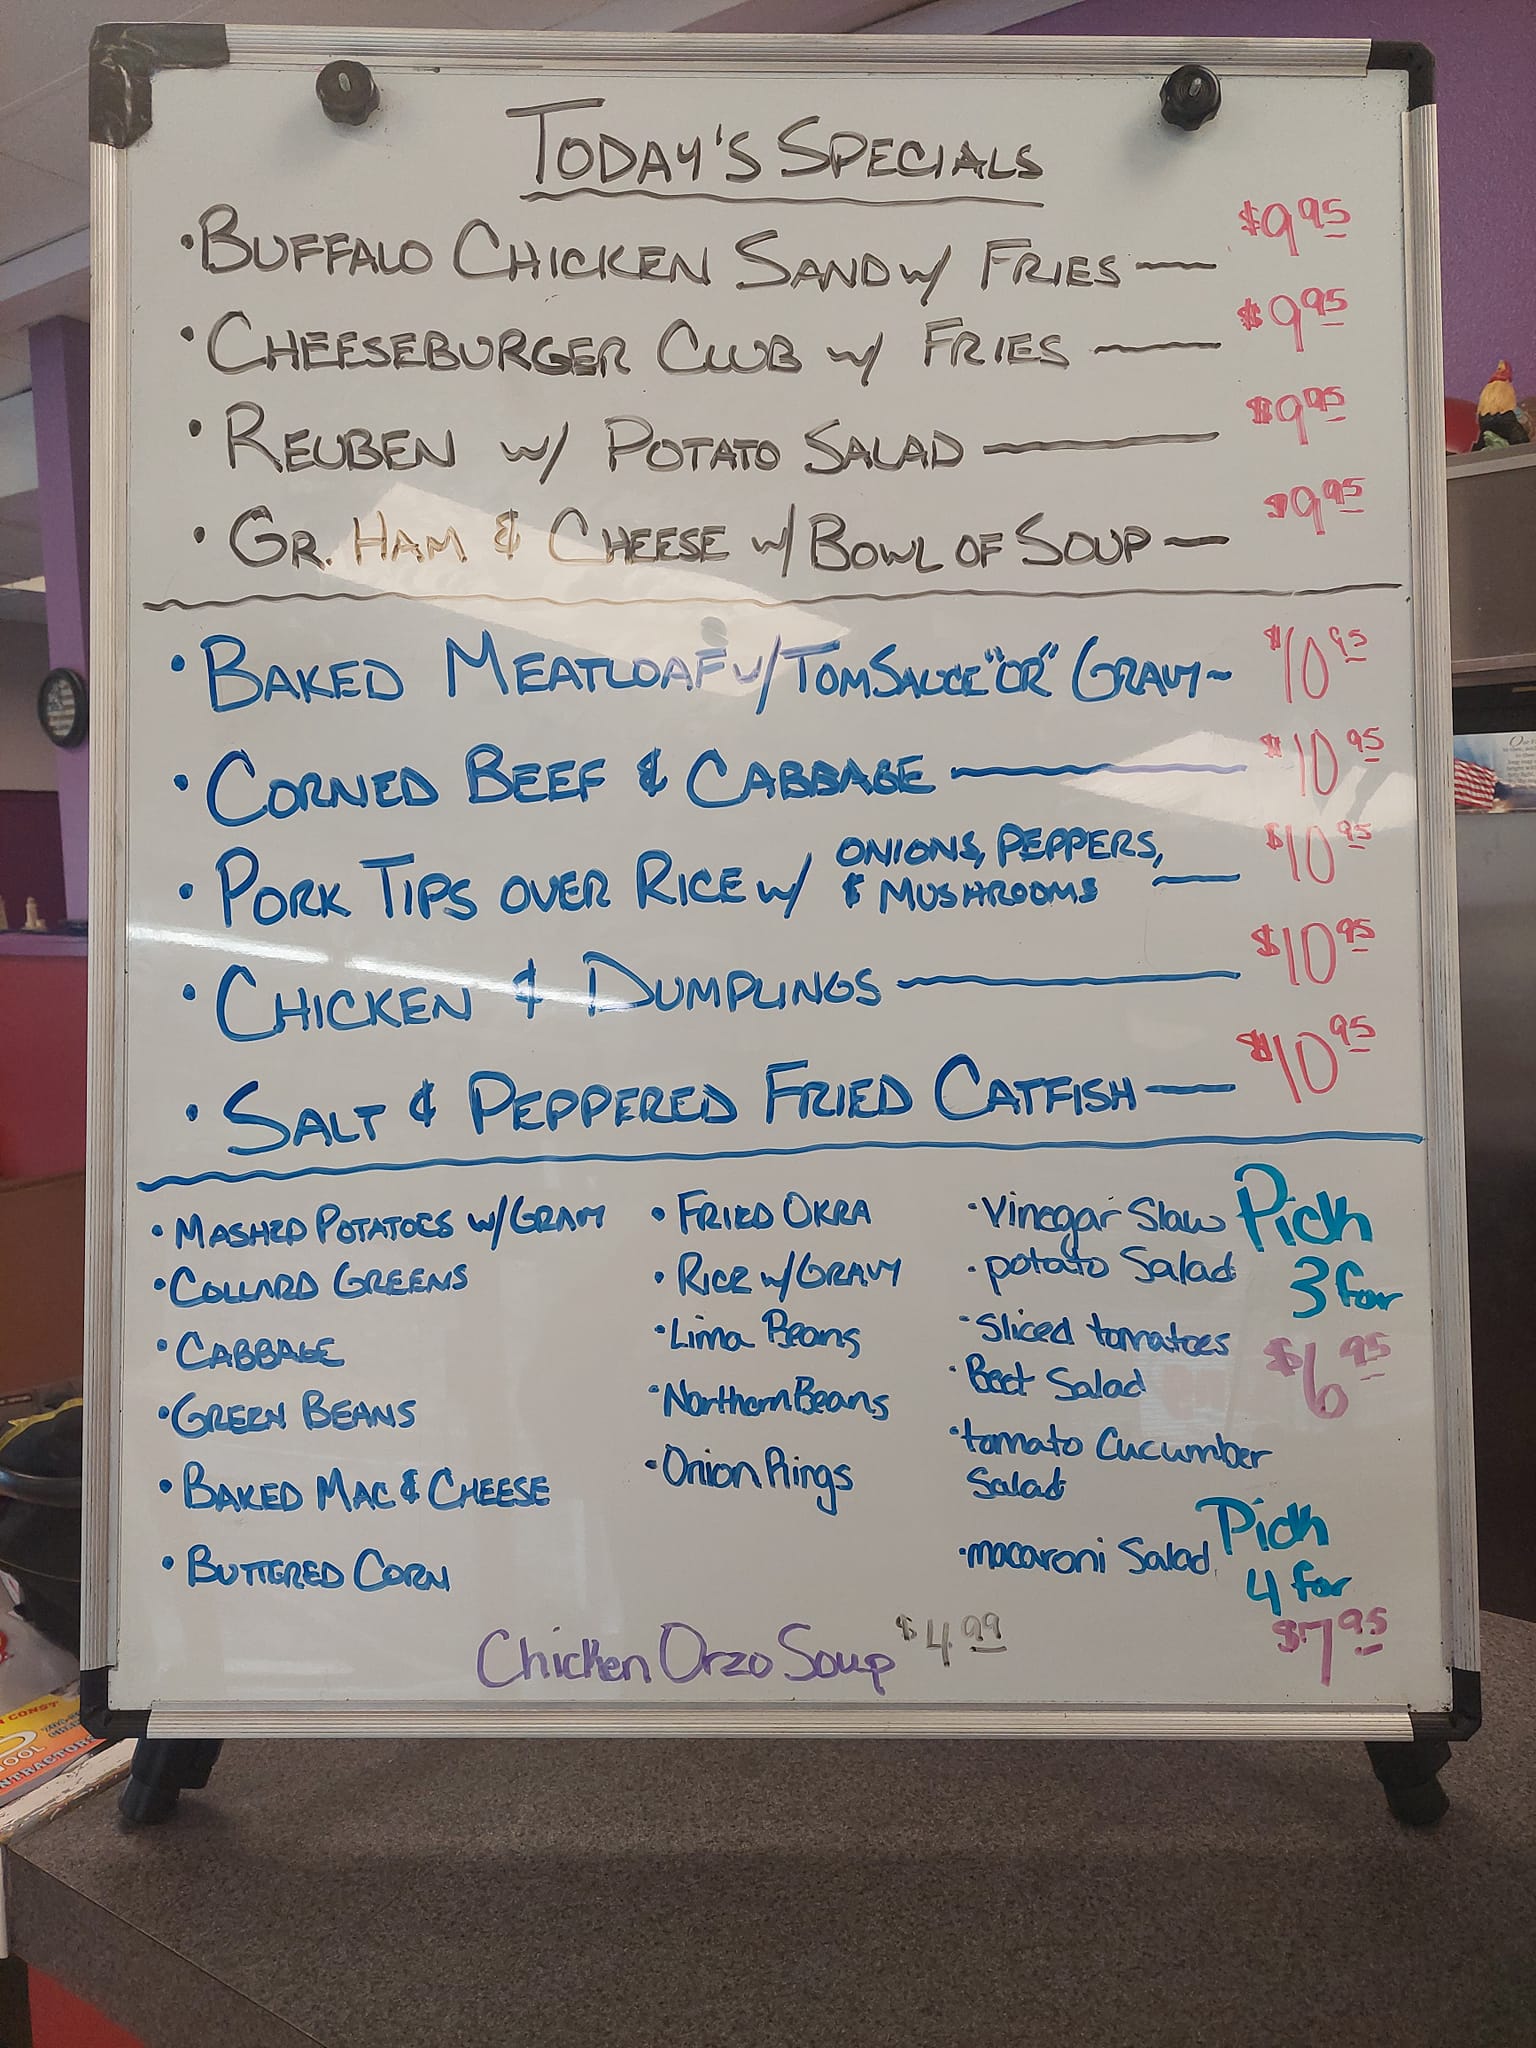 TODAY'S SPECIALS
• BUFFALO CHICKEN SAND W/ FRIES — $9.95
• CHEESEBURGER CLUB W/ FRIES — $9.95
• REUBEN W/ POTATO SALAD — $9.95
• GR. HAM & CHEESE W/ BOWL OF SOUP — $9.95
• BAKED MEATLOAF W/ TOM SAUCE "OR" GRAVY ~ $10.95
• CORNED BEEF & CABBAGE — $10.95
• PORK TIPS OVER RICE W/ ONIONS, PEPPERS, & MUSHROOMS — $10.95
• CHICKEN & DUMPLINGS — $10.95
• SALT & PEPPERED FRIED CATFISH — $10.95
• MASHED POTATOES W/ GRAVY
• COLLARD GREENS
• CABBAGE
• GREEN BEANS
• BAKED MAC & CHEESE
• BUTTERED CORN
• FRIED OKRA
• RICE W/ GRAVY
• Lima Beans
• Northern Beans
• Onion Rings
• Vinegar Slaw
• potato Salad
• Sliced tomatoes
• Beet Salad
• tomato Cucumber
Salad
• macaroni Salad
Pick
3 for
$6.95
Pick
4 for
$7.95
Chicken Orzo Soup $4.99